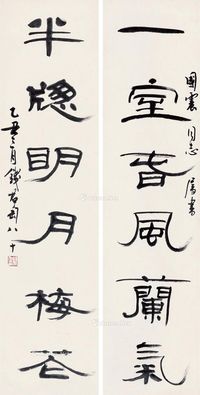 一室春风蘭氣
國震同志屬書
半窓明月梅花
乙丑三月錢君匋八十